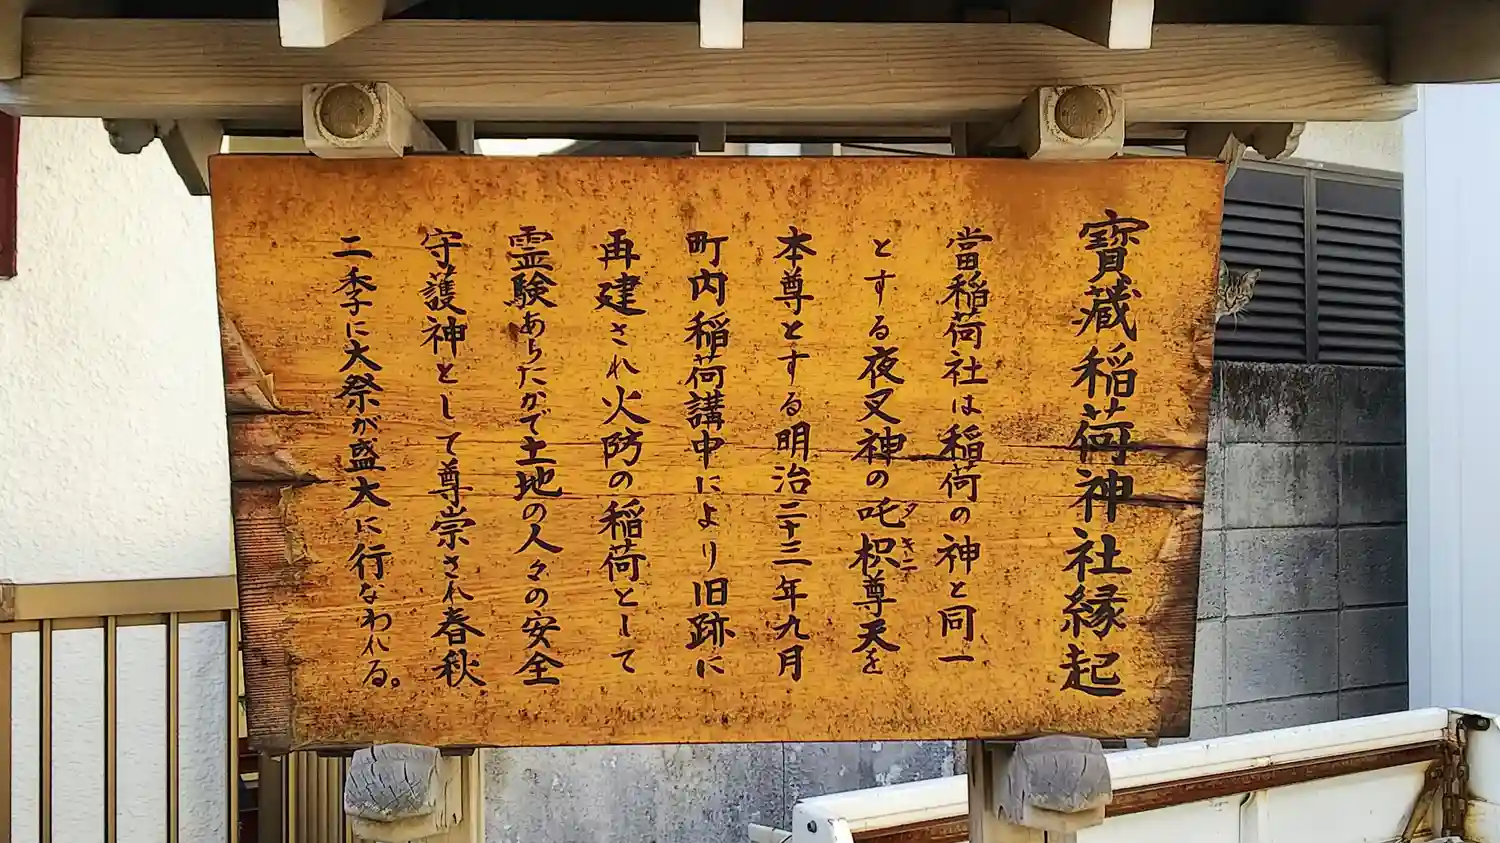 寳蔵稲荷神社縁起
當稲荷社は稲荷の神と同一
とする夜叉神の吒枳尊天を
タ
キニ
本尊とする明治二十三年九月
町内稲荷講中により旧跡に
再建され火防の稲荷として
霊験あらたかで土地の人々の安全
守護神として尊崇され春秋
二季に大祭が盛大に行なわれる。